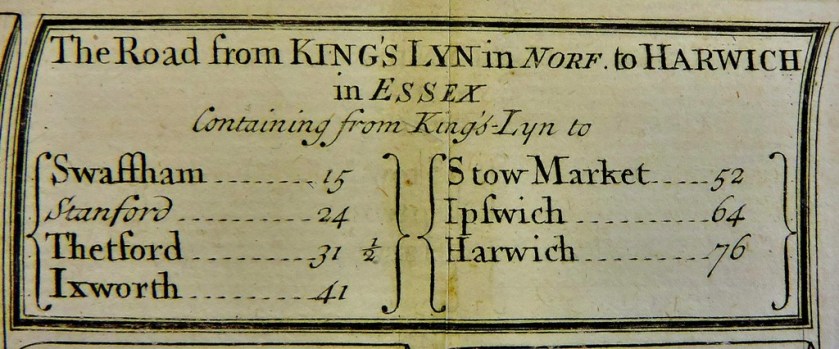 The Road from KING'S LYN in NORF. to HARWICH
in ESSEX
Containing from King's-Lyn to
Swaffham 15
Stanford 24
Thetford 31 ½
Ixworth 41
Stow Market 52
Ipſwich 64
Harwich 76